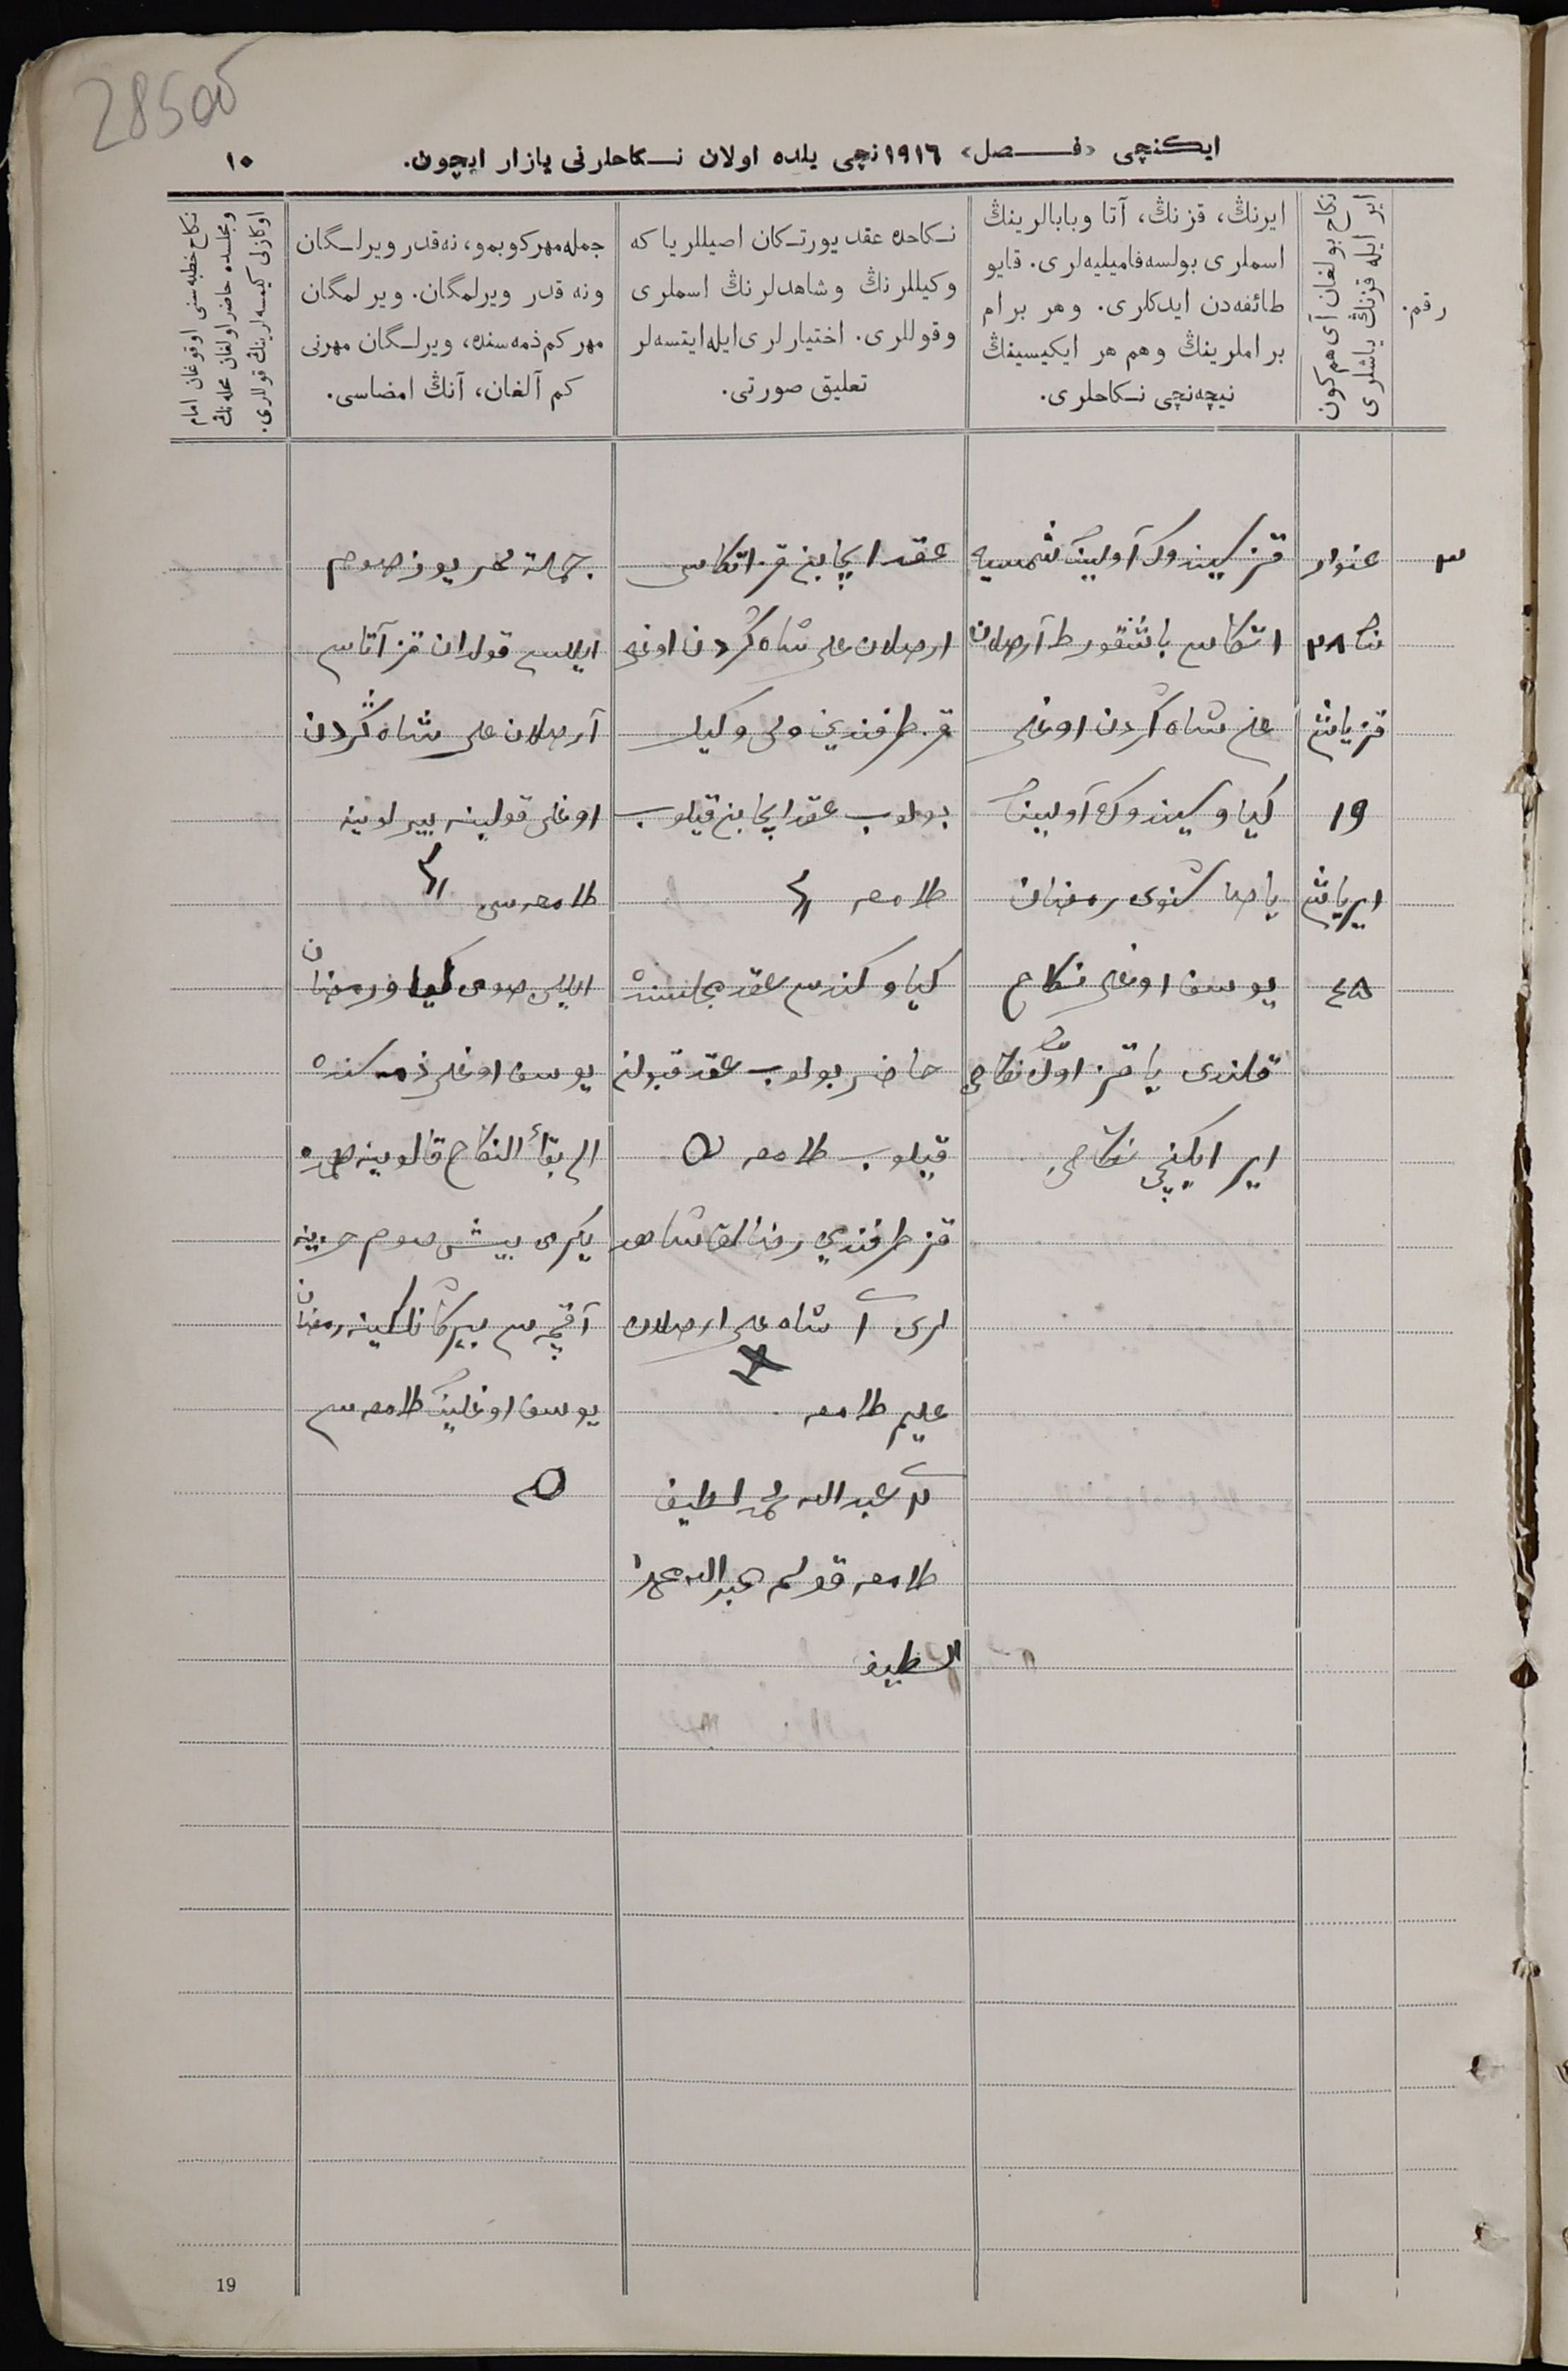 28500
ایکنچی «فصل» ١٩١٦ نچی یلده اولان نکاحلرنی یازار ایچون.
١٠
رقم.
نکاح بولغان آی هم کون
ایر ایله قزنڭ یاشلری
ایرنڭ، قزنڭ، آتا وبابالرینڭ
اسملری بولسه فامیلیه‌لری. قایو
طائفه‌دن ایدکلری. وهر برام
براملرینڭ وهم هر ایکیسینڭ
نیچه‌نچی نکاحلری.
نکاحده عقد یورتکان اصیللر یا که
وکیللرنڭ وشاهدلرنڭ اسملری
وقوللری. اختیارلری ایله ایتسه‌لر
تعلیق صورتی.
جمله مهر کوبمو، نه‌قدر ویرلگان
ونه قدر ویرلمگان. ویرلمگان
مهر کم ذمه‌سنده، ویرلگان مهرنی
کم آلغان، آنڭ امضاسی.
نکاح خطبه‌سنی اوقوغان امام
ومجلسده حاضر اولغان محله‌نڭ
اوکازنی کیمسه‌لرینڭ قوللری.
٣
غنوار
٢٨
قز یاشی
19
ایر یاشی
٤٥
قز آولینڭ شمسیه
اتکاسی باشقورط آرصلان
علی شاه گردن اوغلی
کیاو آولینڭ
رمضان
یوسف اوغلی نکاح
قلندی یا قز اول نکاحی
ایر ایکنچی نکاحی
عقد ایجابن قز اتکاسی
ارصلان علی شاه گردن اوغلی
قز طرفندین ولی وکیل
بولوب عقد ایجابن قیلوب
طامعه
کیاو کندسی عقد مجلسنده
حاضر بولوب عقد قبولن
قیلوب طامعه
قز طرفندین رضالقا شاهد
لری ١ شاه علی ارصلان
علیم طامعه
٢ عبدالله محمد لطیف
طامعه قولم عبدالله محمد
لطیف
جملة مهر یوز صوم
ایللیسی قولدان قز آتاسی
آرصلان علی شاه گردن
اوغلی قولینه بیرلوینه
طامعه‌سی
ایللی صومی کیاو رمضان
یوسف اوغلی ذمه‌سنده
الی بقاء النکاح قالوینه همده
یکرمی بیش صوم
آقچه‌سی بیرکانلکینه رمضان
یوسف اوغلینڭ طامعه‌سی
19